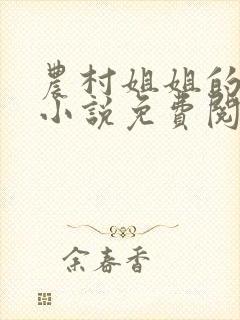 農村姐姐的
小說免費閱
余春香